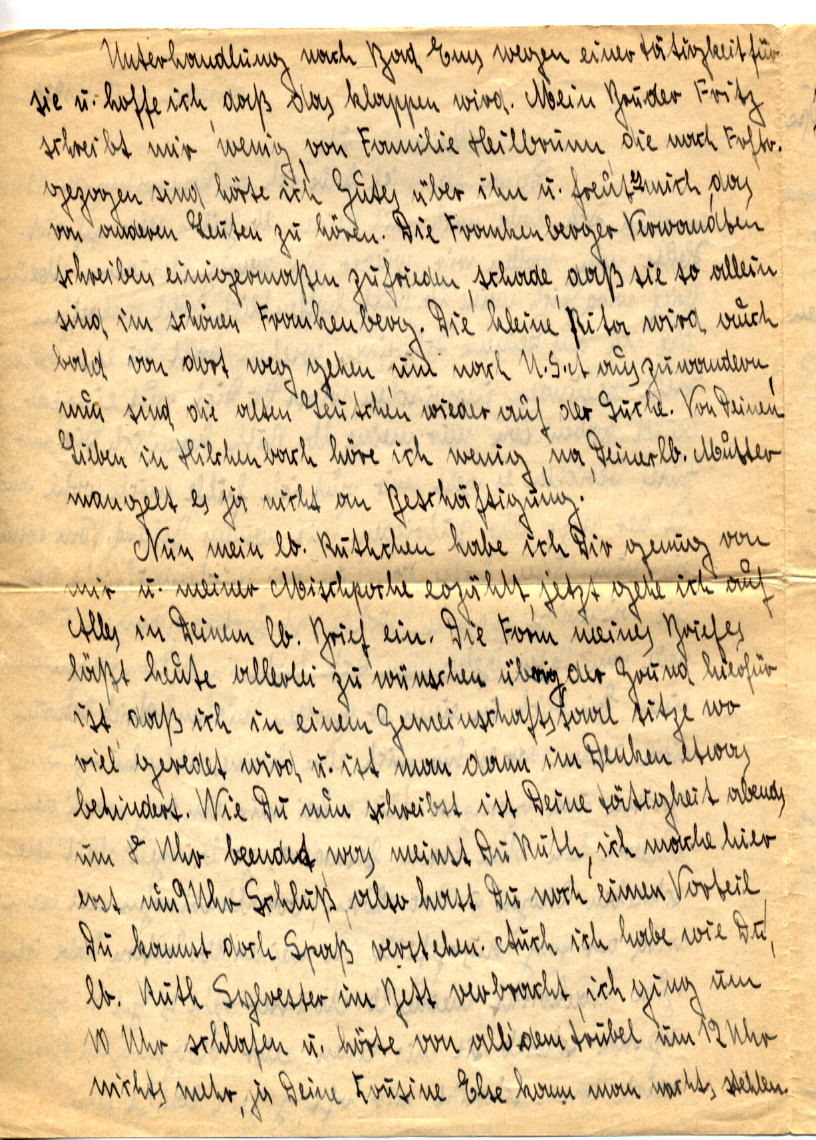 Unterhandlung nach Bad Ems wegen einer Tätigkeit für
sie u. hoffe ich, daß das klappen wird. Mein Bruder Fritz
schreibt mir wenig, von Familie Heilbrunn, die nach Frftr.
gezogen sind hörte ich Gutes über ihn u. freut's mich das
von anderen Leuten zu hören. Die Frankenberger Verwandten
schreiben einigermaßen zufrieden, schade, daß sie so allein
sind, im schönen Frankenberg. Die kleine Rita wird auch
bald von dort weg gehen um nach U.S.A auszuwandern,
nun sind die alten Leutchen wieder auf der Suche. Von Deinen
Lieben in Hilchenbach höre ich wenig, na, Deiner lb. Mutter
mangelt es ja nicht an Beschäftigung.
Nun mein lb. Ruthchen habe ich Dir genug von
mir u. meiner Mischpoche erzählt, jetzt gehe ich auf
Alles in Deinem lb. Brief ein. Die Form meines Briefes
läßt heute allerlei zu wünschen übrig, der Grund hierfür
ist, daß ich in einem Gemeinschaftssaal sitze wo
viel geredet wird, u. ist man dann im Denken etwas
behindert. Wie Du nun schreibst ist Deine Tätigkeit abends
um 8 Uhr beendet was meinst Du Ruth, ich mache hier
erst um 9 Uhr Schluß, also hast Du noch einen Vorteil,
Du kannst doch Spaß verstehen. Auch ich habe wie Du,
lb. Ruth Sylvester im Bett verbracht, ich ging um
10 Uhr schlafen u. hörte von all dem Trubel um 12 Uhr
nichts mehr, ja Deine Cousine Else kann man nachts stehlen.